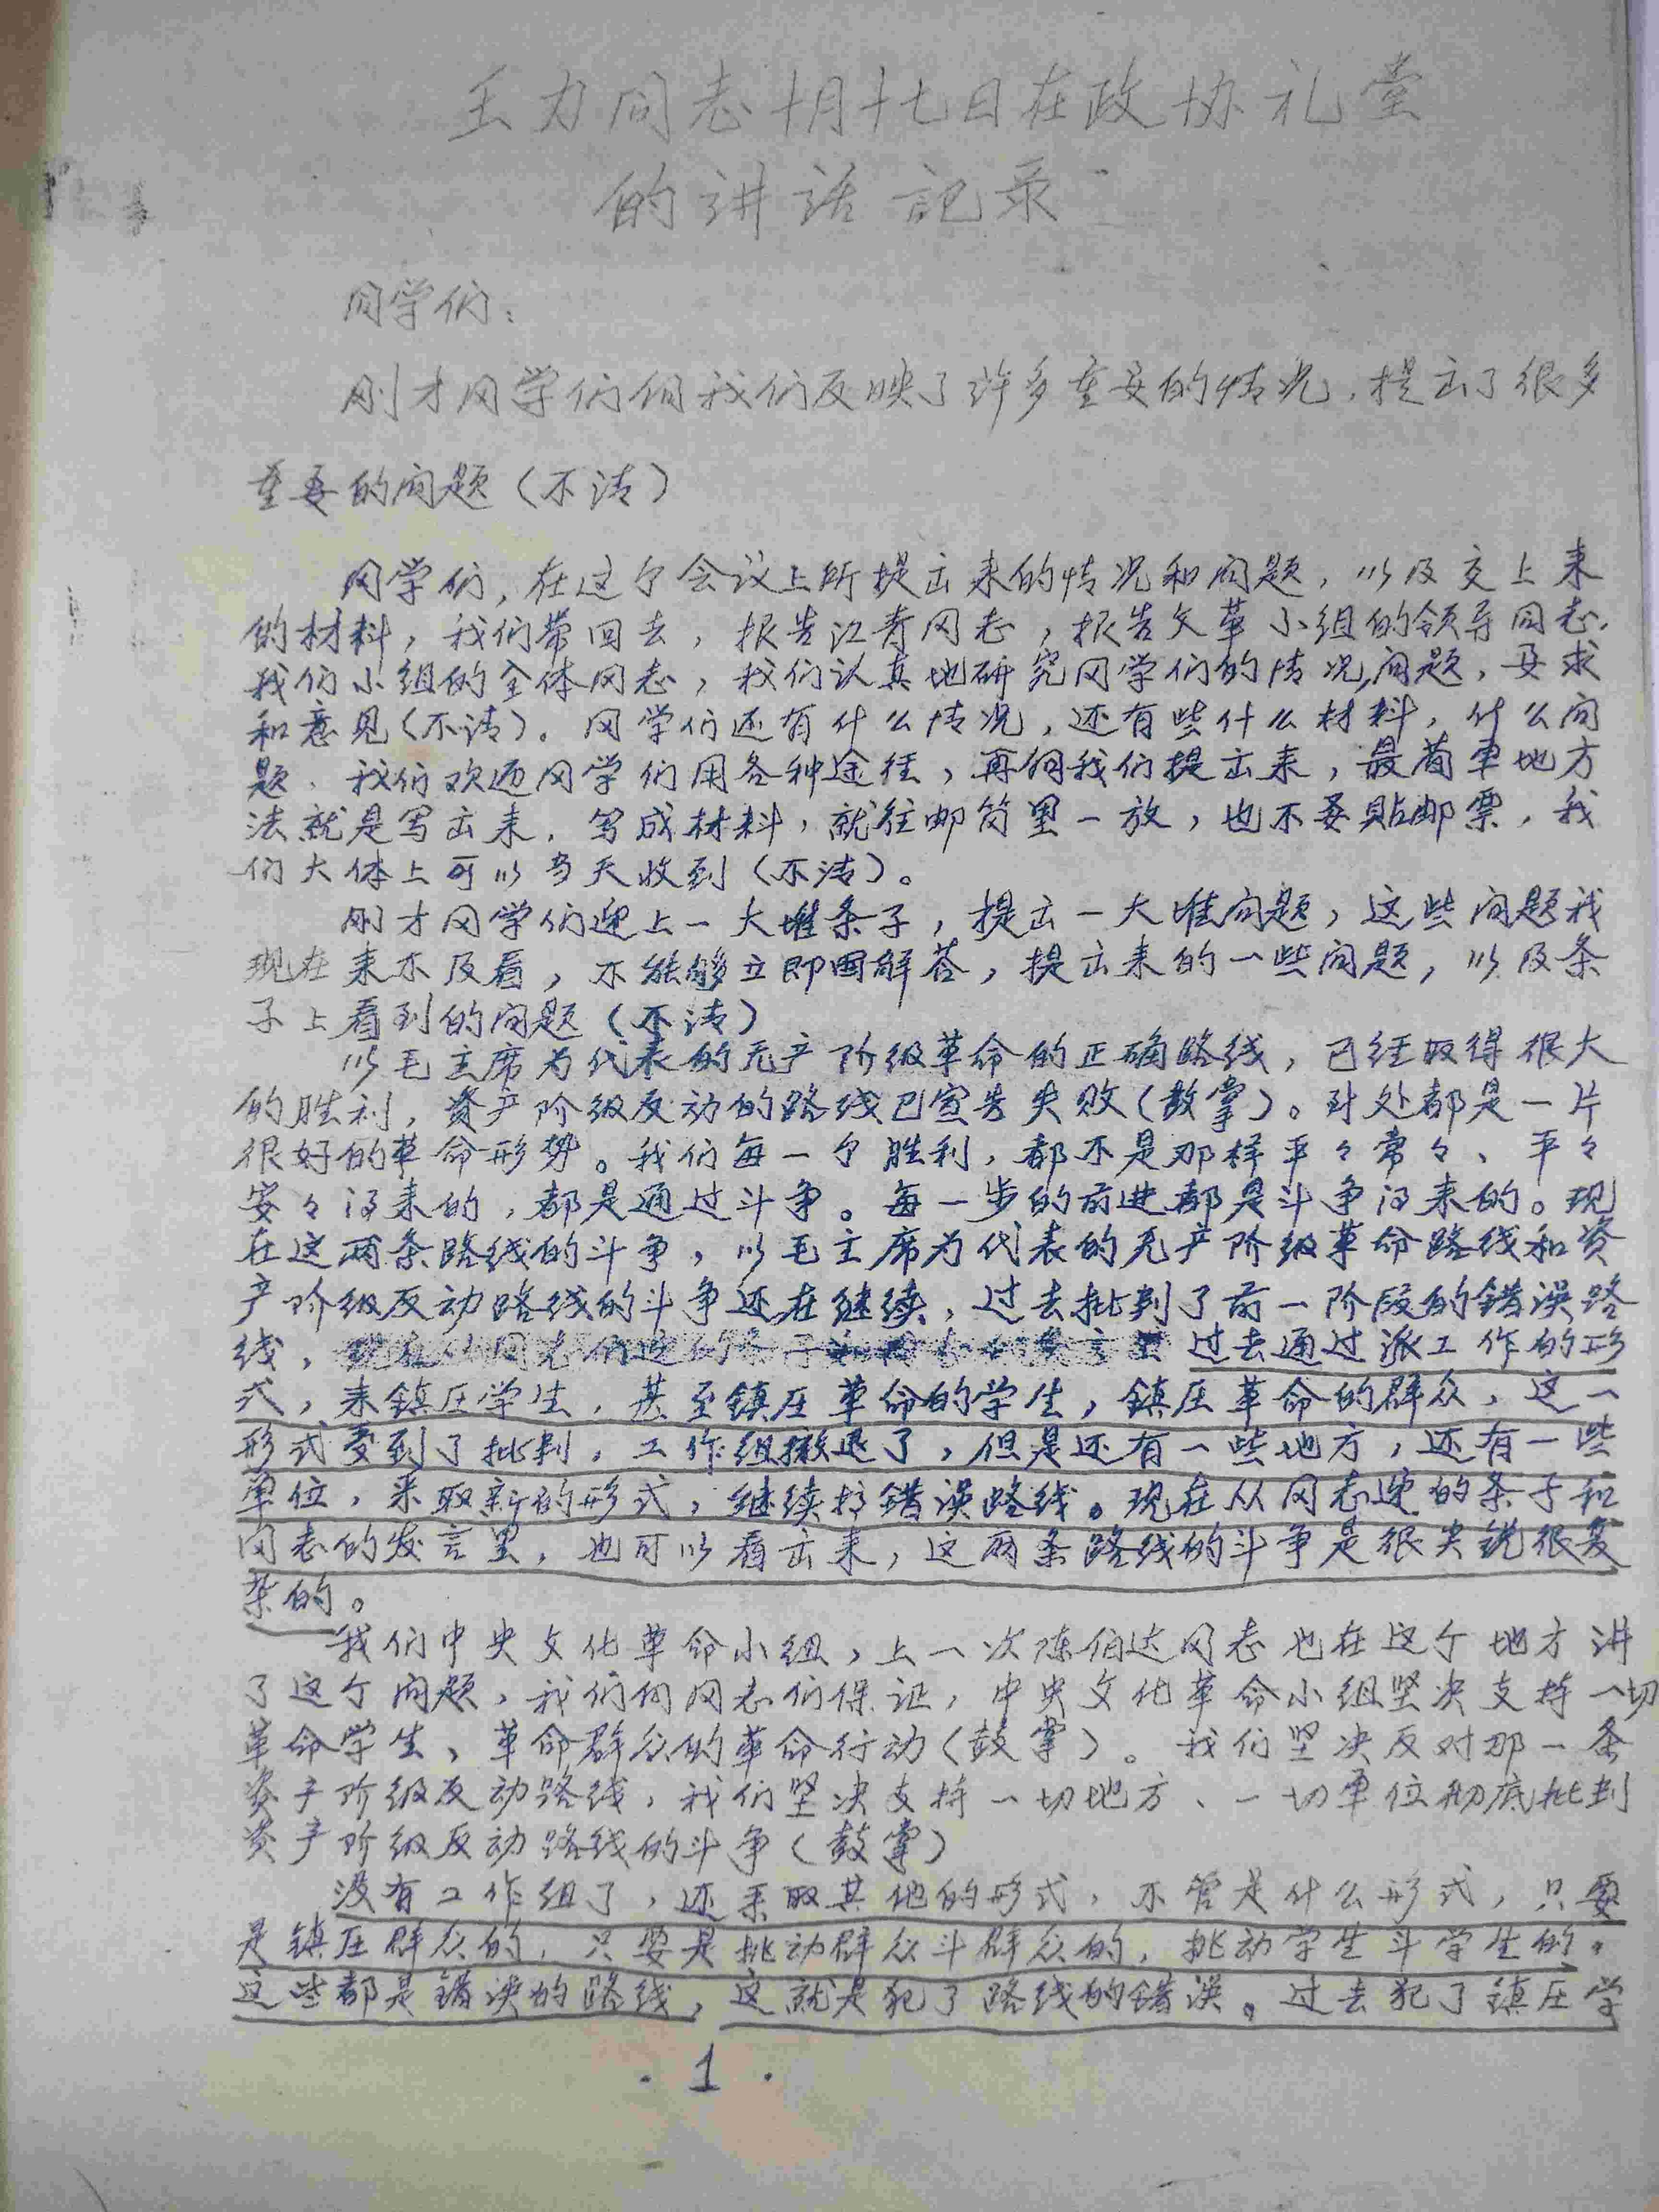 王力同志十月十七日在政协礼堂
的讲话記录
同学们：
刚才同学们向我们反映了许多重要的情况，提出了很多
重要的问题（不清）
同学们，在这个会议上所提出来的情况和问题，以及交上来
的材料，我们带回去，报告江青同志，报告文革小组的领导同志，
我们小组的全体同志，我们认真地研究同学们的情况，问题，要求
和意见（不清）。同学们还有什么情况，还有些什么材料，什么问
题，我们欢迎同学们用各种途径，再向我们提出来，最简单地方
法就是写出来，写成材料，就往邮筒里一放，也不要貼邮票，我
们大体上可以当天收到（不清）。
刚才同学们递上一大堆条子，提出一大堆问题，这些问题我
现在来不及看，不能够立即回解答，提出来的一些问题，以及条
子上看到的问题（不清）
以毛主席为代表的无产阶级革命的正确路线，已经取得很大
的胜利，资产阶级反动的路线已宣告失败（鼓掌）。到处都是一片
很好的革命形势。我们每一个胜利，都不是那样平々常々、平々
安々得来的，都是通过斗争。每一步的前进都是斗争得来的。现
在这两条路线的斗争，以毛主席为代表的无产阶级革命路线和资
产阶级反动路线的斗争还在继续，过去批判了前一阶段的错误路
线，过去通过派工作的形
式，来鎮压学生，甚至鎮压革命的学生，鎮压革命的群众，这一
形式受到了批判，工作组撤退了，但是还有一些地方，还有一些
单位，采取新的形式，继续搞错误路线。现在从同志递的条子和
同志的发言里，也可以看出来，这两条路线的斗争是很尖锐很复
杂的。
我们中央文化革命小组，上一次陈伯达同志也在这个地方讲
了这个问题，我们向同志们保证，中央文化革命小组坚决支持一切
革命学生、革命群众的革命行动（鼓掌）。我们坚决反对那一条
资产阶级反动路线，我们坚决支持一切地方、一切单位彻底批判
资产阶级反动路线的斗争（鼓掌）
没有工作组了，还采取其他的形式，不管是什么形式，只要
是镇压群众的，只要是挑动群众斗群众的，挑动学生斗学生的，
这些都是错误的路线，这就是犯了路线的错误。过去犯了镇压学
·1·